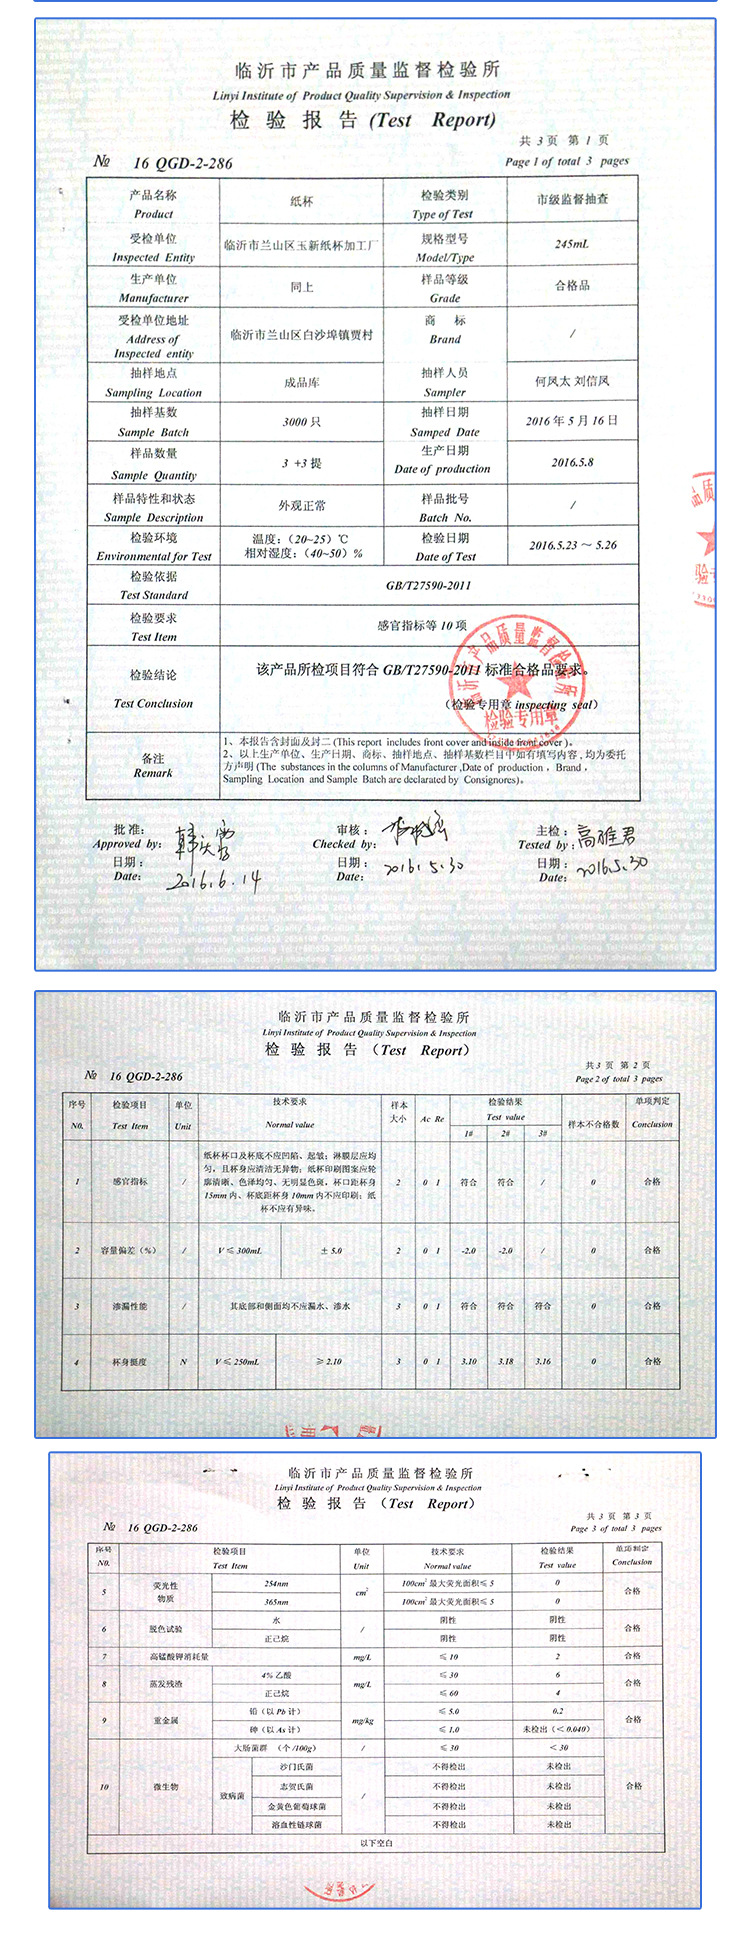 临沂市产品质量监督检验所
Linyi Institute of Product Quality Supervision & Inspection
检 验 报 告 (Test Report)
共 3 页 第 1 页
№ 16 QGD-2-286 Page 1 of total 3 pages
产品名称 纸杯 检验类别 市级监督抽查
Product Type of Test
受检单位 临沂市兰山区玉新纸杯加工厂 规格型号 245mL
Inspected Entity Model/Type
生产单位 同上 样品等级 合格品
Manufacturer Grade
受检单位地址 临沂市兰山区白沙埠镇贾村 商 标 /
Address of Brand
Inspected entity
抽样地点 成品库 抽样人员 何凤太 刘信凤
Sampling Location Sampler
抽样基数 3000 只 抽样日期 2016 年 5 月 16 日
Sample Batch Samped Date
样品数量 3 +3 提 生产日期 2016.5.8
Sample Quantity Date of production
样品特性和状态 外观正常 样品批号 /
Sample Description Batch No.
检验环境 温度:(20~25)℃ 检验日期 2016.5.23 ~ 5.26
Environmental for Test 相对湿度:(40~50)% Date of Test
检验依据 GB/T27590-2011
Test Standard
检验要求 感官指标等 10 项
Test Item
检验结论 该产品所检项目符合 GB/T27590-2011 标准合格品要求。
Test Conclusion (检验专用章 inspecting seal)
检验专用章
备注
Remark
1、本报告含封面及封二 (This report includes front cover and inside front cover )。
2、以上生产单位、生产日期、商标、抽样地点、抽样基数栏目中如有填写内容,均为委托
方声明 (The substances in the columns of Manufacturer ,Date of production , Brand ,
Sampling Location and Sample Batch are declarated by Consignores)。
批准: 审核: 主检: 高雅君
Approved by: Checked by: Tested by:
日期: 日期: 日期:
Date: 2016.6.14 Date: 2016.5.30 Date: 2016.5.30
临沂市产品质量监督检验所
Linyi Institute of Product Quality Supervision & Inspection
检 验 报 告 (Test Report)
共 3 页 第 2 页
№ 16 QGD-2-286 Page 2 of total 3 pages
序号 检验项目 单位 技术要求 样本大小 Ac Re 检验结果 样本不合格数 单项判定
N0. Test Item Unit Normal value Test value Conclusion
1# 2# 3#
纸杯杯口及杯底不应凹陷、起皱;淋膜层应均
匀,且杯身应清洁无异物;纸杯印刷图案应轮
1 感官指标 / 廓清晰、色泽均匀、无明显色斑,杯口距杯身 2 0 1 符合 符合 / 0 合格
15mm 内、杯底距杯身 10mm 内不应印刷;纸
杯不应有异味。
2 容量偏差(%) / V ≤ 300mL ± 5.0 2 0 1 -2.0 -2.0 / 0 合格
3 渗漏性能 / 其底部和侧面均不应漏水、渗水 3 0 1 符合 符合 符合 0 合格
4 杯身挺度 N V ≤ 250mL ≥ 2.10 3 0 1 3.10 3.18 3.16 0 合格
临沂市产品质量监督检验所
Linyi Institute of Product Quality Supervision & Inspection
检 验 报 告 (Test Report)
共 3 页 第 3 页
№ 16 QGD-2-286 Page 3 of total 3 pages
序号 检验项目 单位 技术要求 检验结果 单项判定
N0. Test Item Unit Normal value Test value Conclusion
5 荧光性物质 254nm cm² 100cm² 最大荧光面积 ≤ 5 0 合格
365nm 100cm² 最大荧光面积 ≤ 5 0
6 脱色试验 水 / 阴性 阴性 合格
正己烷 阴性 阴性
7 高锰酸钾消耗量 mg/L ≤ 10 2 合格
8 蒸发残渣 4%乙酸 mg/L ≤ 30 6 合格
正己烷 ≤ 60 4
9 重金属 铅(以 Pb 计) mg/kg ≤ 5.0 0.2 合格
砷(以 As 计) ≤ 1.0 未检出(< 0.040)
10 微生物 大肠菌群 (个/100g) / ≤ 30 < 30 合格
致病菌 沙门氏菌 / 不得检出 未检出
志贺氏菌 不得检出 未检出
金黄色葡萄球菌 不得检出 未检出
溶血性链球菌 不得检出 未检出
以下空白